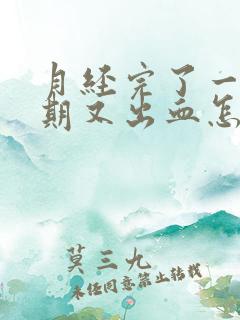 月经完了一
期又出血怎
莫三九
未经同意禁止转载